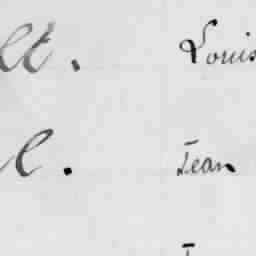 lt. Louis
l. Jean